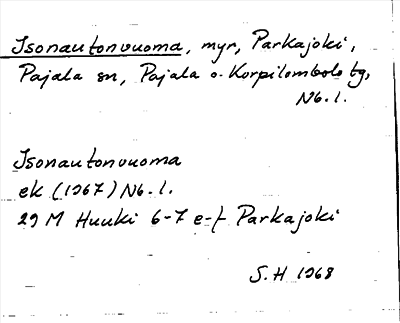 Isonautonvuoma, myr, Parkajoki,
Pajala sn, Pajala o. Korpilombolo tg,
Nb. l.
Isonautonvuoma
ek (1967) Nb. l.
29 M Huuki 6-7 e-f Parkajoki
S. H 1968